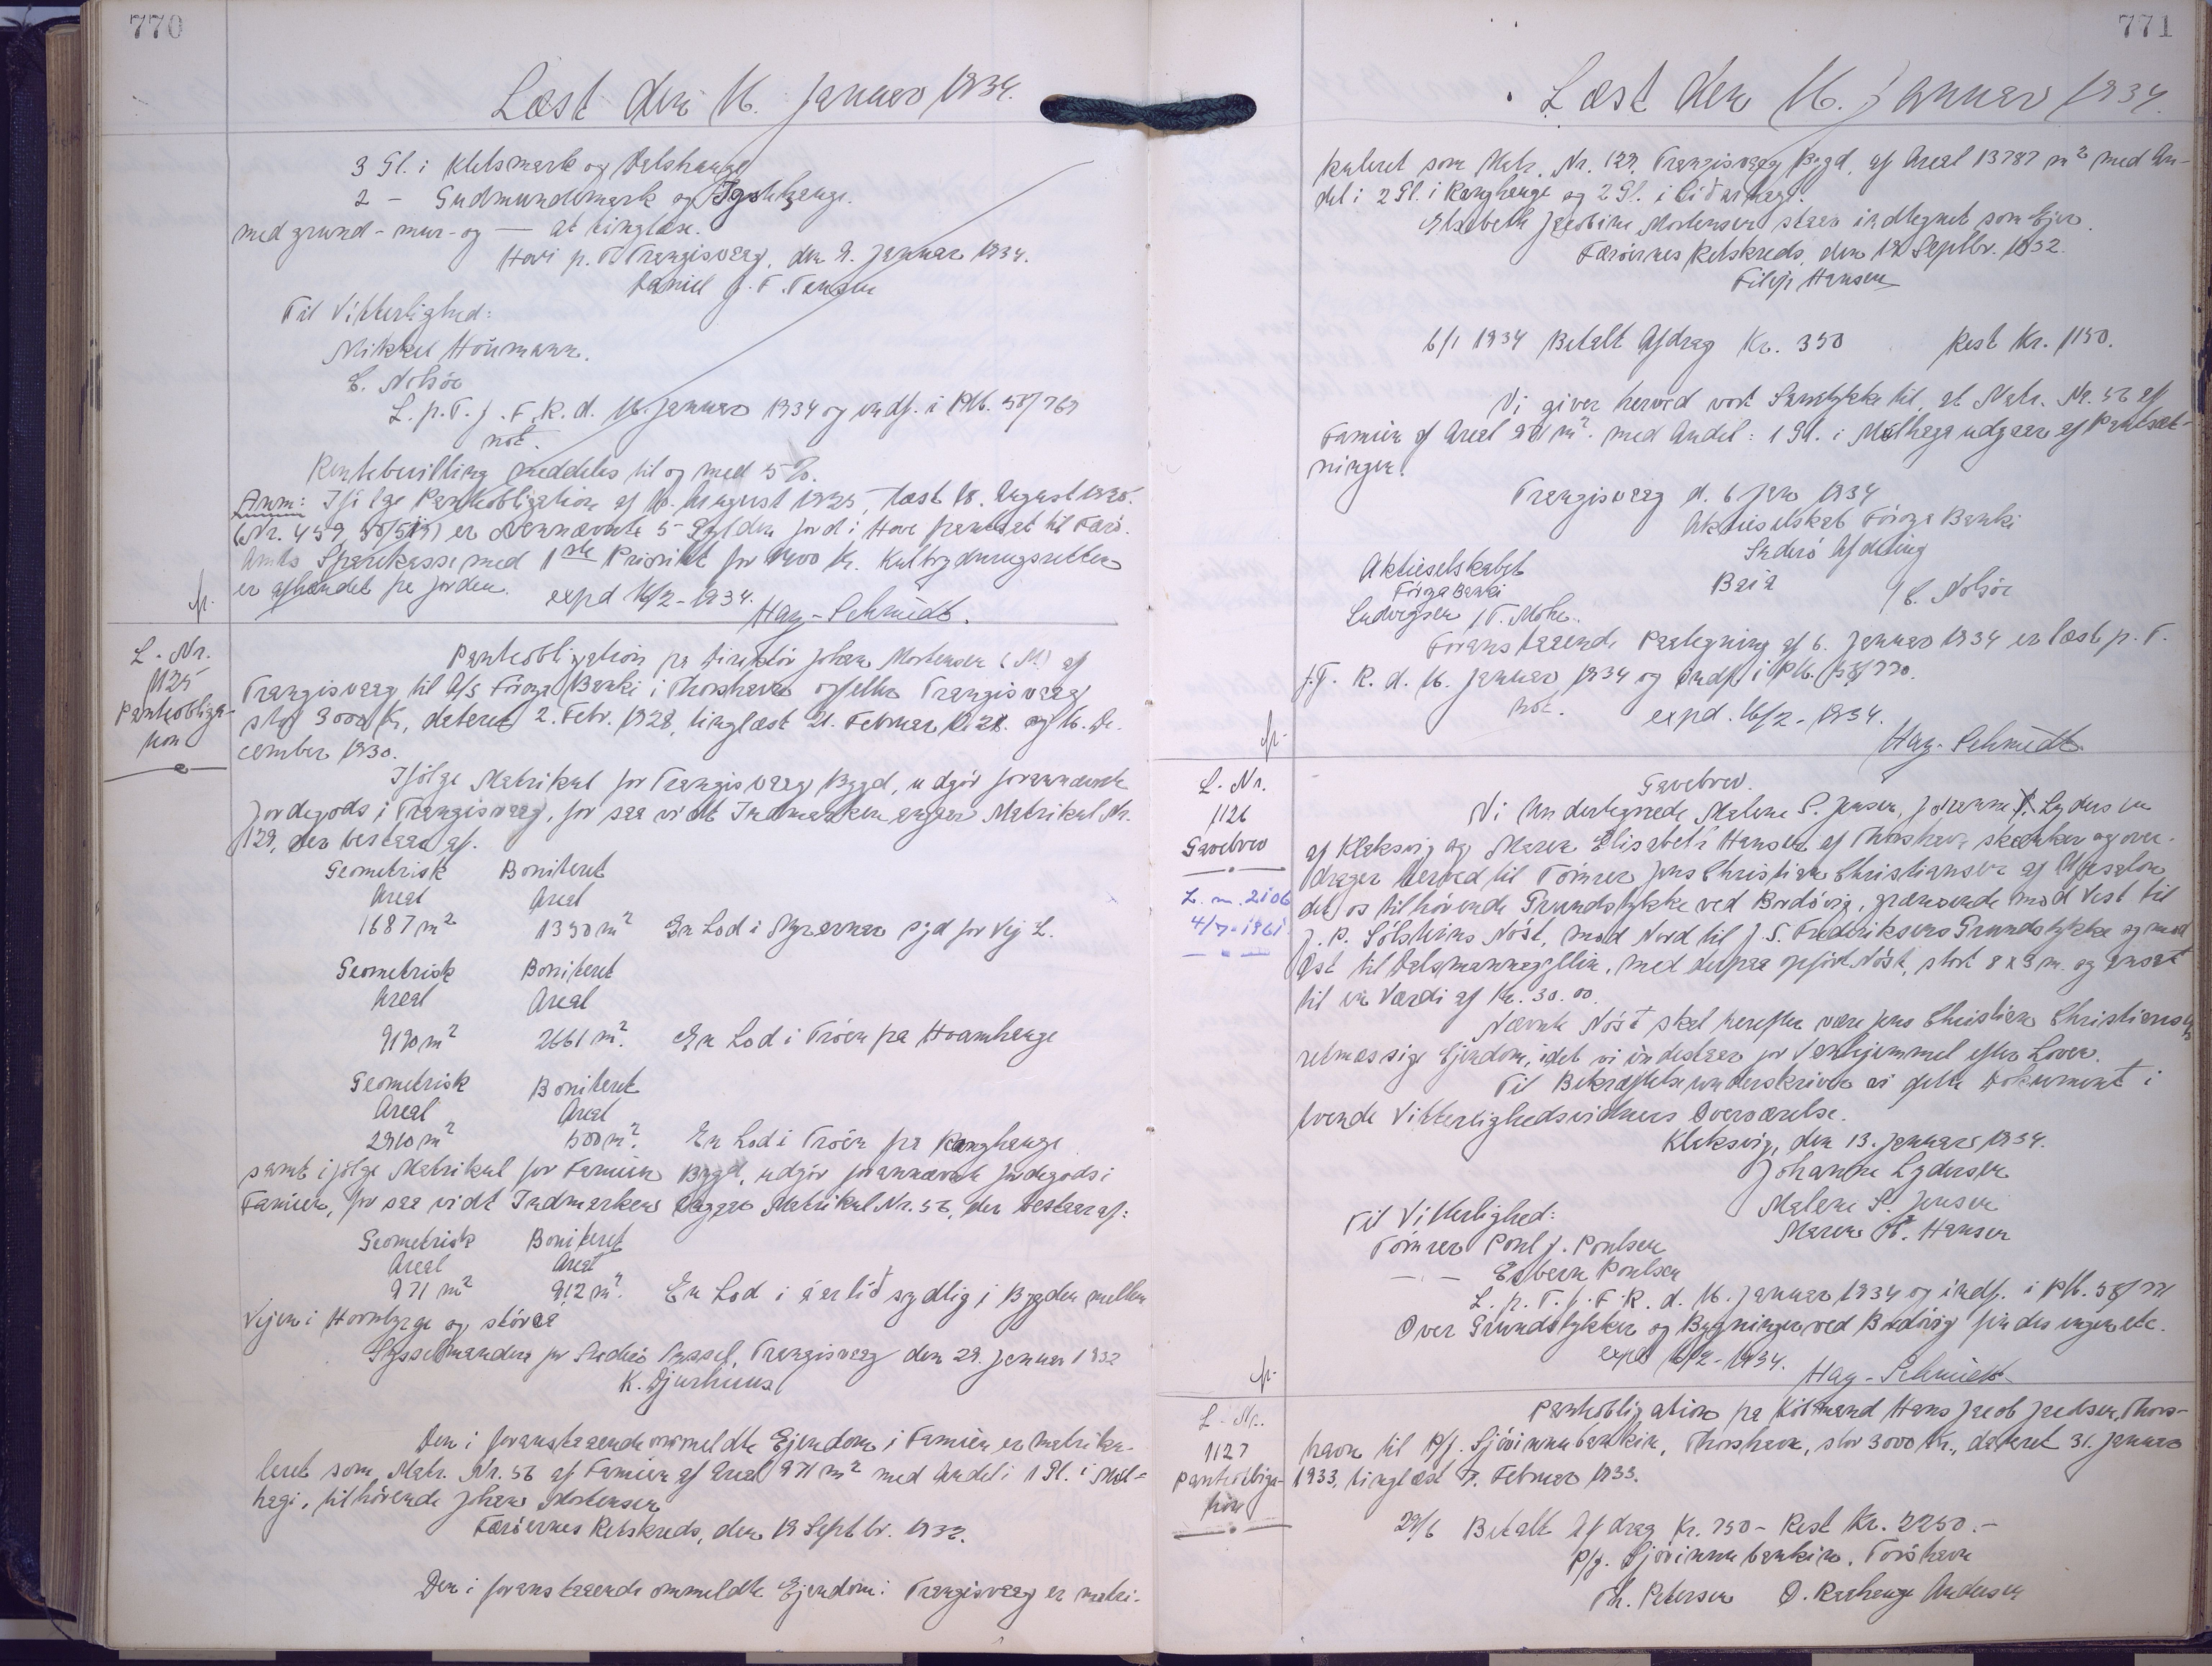 770
Læst den 16. Januar 1934.
3 Gl. i Kletsmark og Dalshauge
2 - Gudmundsmark og
med grund - mur - og — at tinglæse.
Hovi p. T. Trangisvaag, den 9. Januar 1934.
Daniel J. F.
Til Vitterlighed:
Mikkel Höumann.
E. Nolsöe
L. p. T. f. F. R. d. 16. Januar 1934 og indf. i Ptb. 58/769
not.
Rentebevilling meddeles til og med 5 %.
Anm: Ifölge Pantobligation af 10. August 1925, læst 18. August 1925.
(Nr. 459, 50/513) er ovennævnte 5 Gylden Jord i Hove pantsat til Færö.
Amts Sparekasse med 1ste Prioritet for 1400 Kr. Kulbrydningsretten
er afhændet fra Jorden. expd 16/2-1934.
Hay-Schmidt.
L. Nr.
1125
Pantobliga-
tion
Pantobligation fra Direktör Johan Mortensen (M.) af
Trangisvaag til A/S Föroya Banki i Thorshavn og/eller Trangisvaag
stor 3000 Kr., dateret 2. Febr. 1928, tinglæst 21. Februar 1928 og 16. De-
cember 1930.
Ifölge Matrikul for Trangisvaag Bygd, udgör forannævnte
Jordegods i Trangisvaag, for saa vidt Indmarken angaar Matrikul Nr.
129, der bestaar af.
Geometrisk Boniteret
Areal Areal
1687 m² 1350 m² En Lod i Myrernar syd for Vej L.
Geometrisk Boniteret
Areal Areal
9190 m² 2661 m². En Lod i Tröen fra Hvamhauge
Geometrisk Boniteret
Areal Areal
2910 m² 500 m². En Lod i Tröen fra Ranghauge
samt ifölge Matrikul for Famien Bygd, udgör forannævnte Jordegods i
Famien, for saa vidt Indmarken angaar Matrikul Nr. 56, der bestaar af:
Geometrisk Boniteret
Areal Areal
971 m² 912 m². En Lod i sydlig i Bygden mellem
Vejen i Hornbyrge og stórá
Sysselmanden for Suderö Syssel, Trangisvaag den 29. Januar 1932
K. Djurhuus
Den i foranstaaende ommeldte Ejendom i Famien er matriku-
leret som Matr. Nr. 56 af Famien af Areal 971 m² med Andel i 1 Gl. i Mel-
hagi, tilhörende Johan Mortensen
Færöernes Retskreds, den 19 Septbr. 1932.
Den i foranstaaende ommeldte Ejendom i Trangisvaag er matri-
771
Læst den 16. Januar 1934.
kuleret som Matr. Nr. 129. Trangisvaag Bygd, af Areal 13787 m² med An-
del i 2 Gl. i Ranghauge og 2 Gl. i
Elsebeth Jacobine Mortensen staar indtegnet som Ejer.
Færöernes Retskreds, den 19 Septbr. 1932.
Filip Hansen
6/1 1934 Betalt Afdrag Kr. 350 Rest Kr. 1150.
Vi giver herved vort Samtykke til, at Matr. Nr. 56 af
Famien af Areal 971 m². med Andel: 1 Gl. i Melhaga udgaar af Pantsæt-
ningen.
Trangisvaag d. 6 Jan 1934
Aktieselskab Föroya Banki
Suderö Afdeling
Aktieselskabet
Föroya Banki
Ludvigsen / T. Mohr.
/ E. Nolsöe
Foranstaaende Paategning af 6. Januar 1934 er læst p. T.
f. F. R. d. 16. Januar 1934 og indf. i Ptb. 58/770.
not. expd. 16/2-1934.
Hay-Schmidt
L. Nr.
1126
Gavebrev
L. nr. 2106
4/7-1961
Gavebrev.
Vi Undertegnede Malene S. Jensen, Johanne Lydersen
af Klaksvig og Maren Elisabeth Hansen af Thorshavn skænker og over-
drager herved til Tömrer Jens Christian Christiansen af
det os tilhörende Grundstykke ved Bordövig, grænsende mod Vest til
J. P. Sólsteins Nöst, mod Nord til J. S. Frederiksens Grundstykke og mod
Öst til Dalsmannagyllin, med derpaa opfört Nöst, stort 8 x 3 m. og ansat
til en Værdi af Kr. 30.00.
Nævnte Nöst skal herefter være Jens Christian Christiansens
retmæssige Ejendom, idet vi indestaar for Vanhjemmel efter Loven.
Til Bekræftelse underskrives vi dette Dokument i
tvende Vitterlighedsvidners Overværelse.
Klaksvig, den 13. Januar 1934.
Johanne Lydersen
Malene S. Jensen
Maren E. Hansen
Til Vitterlighed:
Tömrer Poul J. Poulsen
— — Esbern Poulsen
L. p. T. f. F. R. d. 16. Januar 1934 og indf. i Ptb. 58/771
Over Grundstykker og Bygninger ved Bordövig findes ingen etc.
expd 16/2-1934.
Hay-Schmidt
L. Nr.
1127
Pantobliga-
tion
Pantobligation fra Köbmand Hans Jacob Jacobsen, Thors-
havn til P/f. Sjóvinnubankin, Thorshavn, stor 3000 Kr., dateret 31. Januar
1933, tinglæst 7. Februar 1933.
29/6 Betalt Afdrag Kr. 750 - Rest Kr. 2250.-
P/f. Sjóvinnubankin. Torshavn
Th. Petersen O. Andersen